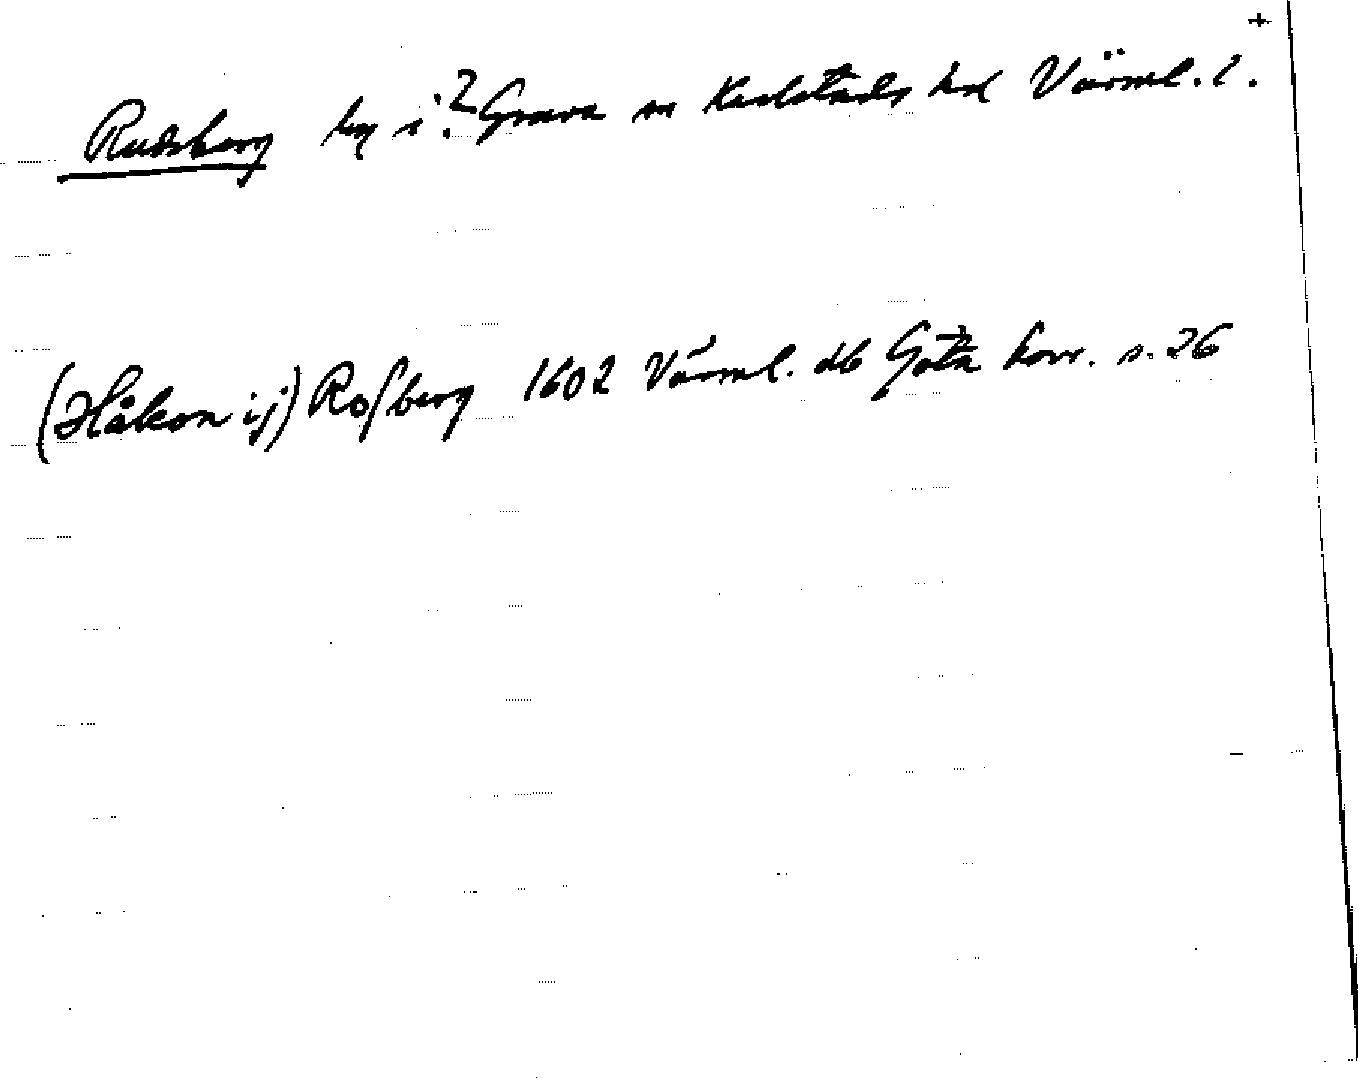 +
Rudsberg by i? Grava sn Karlstads hd Värml. l.
(Håkon ij) Roſberg 1602 Värml. db Göta hovr. s. 26